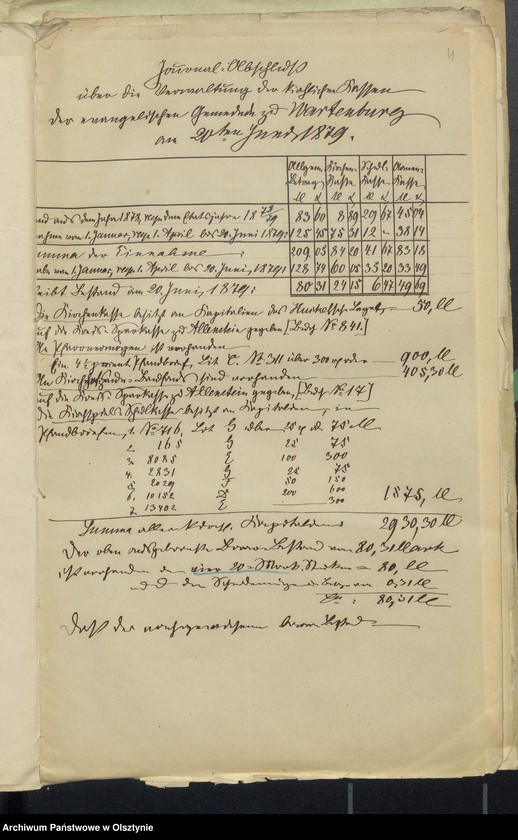 Journal-Abschluß
über die Verwaltung der kirchlichen Kassen
der evangelischen Gemeinde zu Wartenburg
am 20ten Juni 1879.
Allgem. Betrag Kirchen- Kasse Schul- Kasse Armen- Kasse
M ₰ M ₰ M ₰ M ₰
and aus dem Jahre 1878, resp. dem Etatsjahre 1878/79 83 60 8 89 29 67 45 04
nahme vom 1. Januar, resp. 1. April bis 20. Juni 1879: 125 45 75 31 12 – 38 14
umma der Einnahme: 209 05 84 20 41 67 83 18
abe vom 1. Januar, resp. 1. April bis 20. Juni, 1879: 128 74 60 05 35 20 33 49
leibt Bestand am 20. Juni, 1879: 80 31 24 15 6 47 49 69
Die Kirchenkasse besitzt an Kapitalien das Legat, = 50, M
auf der Kreis-Sparkasse zu Allenstein gegeben [No 841.]
Pfarrvermögen ist vorhanden
Ein 4½ procent. Pfandbrief, Lit. C. No 311 über 300 900, M
An Kirchen Landfonds sind vorhanden 405,30 M
auf der Kreis-Sparkasse zu Allenstein gegeben, [No 17]
die Kirchspiels-Schulkasse besitzt an Kapitalien, in
Pfandbriefen, 1. No 716, Lit G über 25 75 M
2. 165 G 25 75
3. 8085 E 100 300
4. 2831 G 25 75
5. 2029 F 50 150
6. 10152 D 200 600
7. 13402 E 300 1575, M
Summa aller Kapitalien 2930,30 M
Der oben Baar-Bestand von 80,31 Mark
ist vorhanden in vier 20-Mark Stücken = 80, M
und in 0,31 M
80,31 M
Daß der nachgewiesene baare Bestand
Archiwum Państwowe w Olsztynie